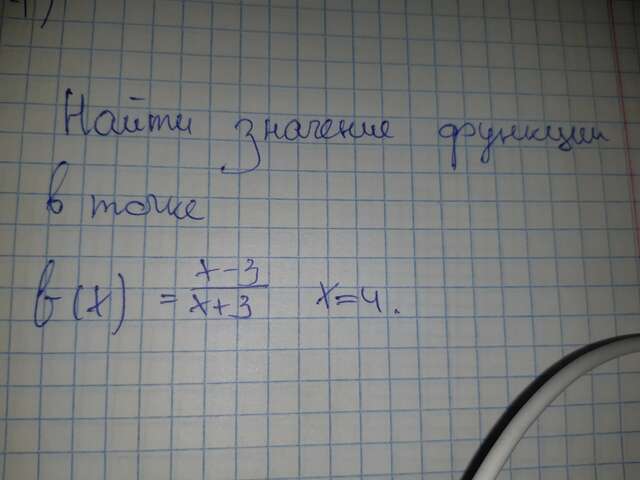 Найти значение функции
в точке
f(x) = \frac{x-3}{x+3} x=4.